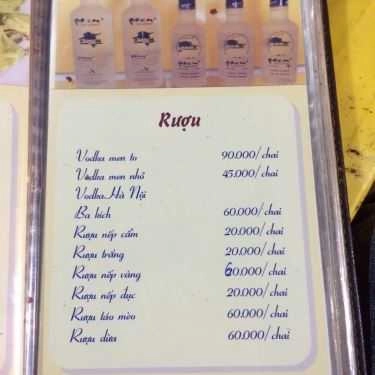 Rượu
Vodka men to 90.000/chai
Vodka men nhỏ 45.000/chai
Vodka Hà Nội
Ba kích 60.000/chai
Rượu nếp cẩm 20.000/chai
Rượu trắng 20.000/chai
Rượu nếp vàng 60.000/chai
Rượu nếp đục 20.000/chai
Rượu táo mèo 60.000/chai
Rượu dừa 60.000/chai